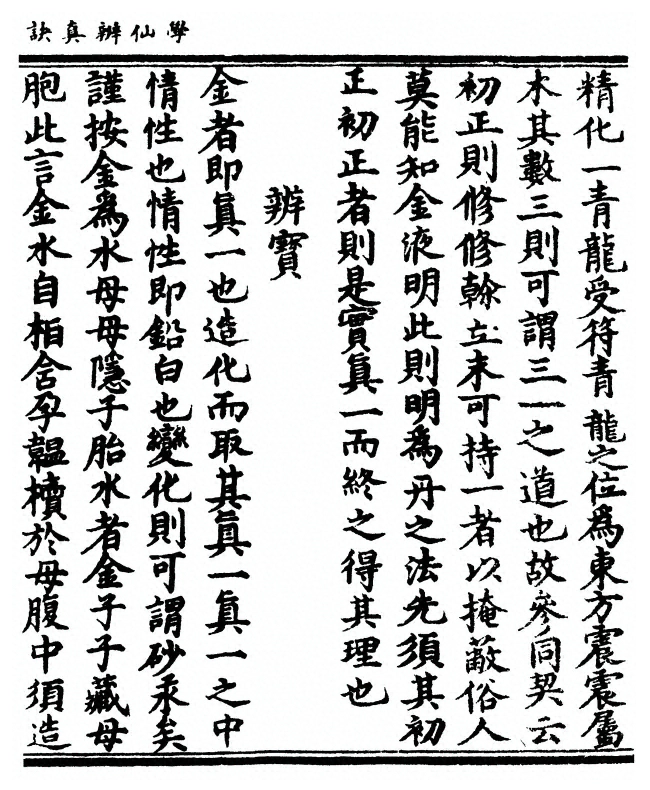 學仙辨真訣
精化一青龍受符青龍之位為東方震震屬
木其數三則可謂三一之道也故參同契云
初正則修修翰立末可持一者以掩蔽俗人
莫能知金液明此則明為丹之法先須其初
正初正者則是實真一而終之得其理也
辨寶
金者即真一也造化而取其真一真一之中
情性也情性即鉛白也變化則可謂砂汞矣
謹按金為水母母隱子胎水者金子子藏母
胞此言金水自相含孕韞櫝於母腹中須造